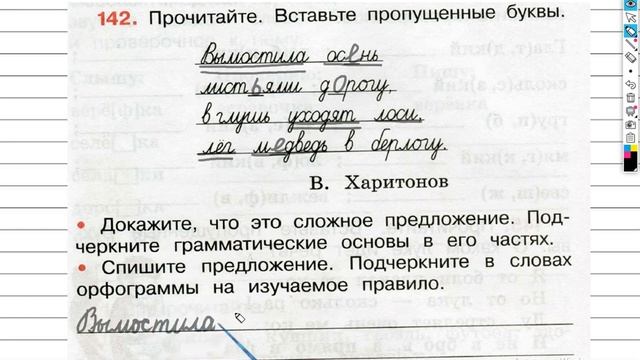 142. Прочитайте. Вставьте пропущенные буквы.
Вымостила осень
листьями дорогу,
в глушь уходят лоси,
лёг медведь в берлогу.
В. Харитонов
• Докажите, что это сложное предложение. Под-
черкните грамматические основы в его частях.
• Спишите предложение. Подчеркните в словах
орфограммы на изучаемое правило.
Вымостила